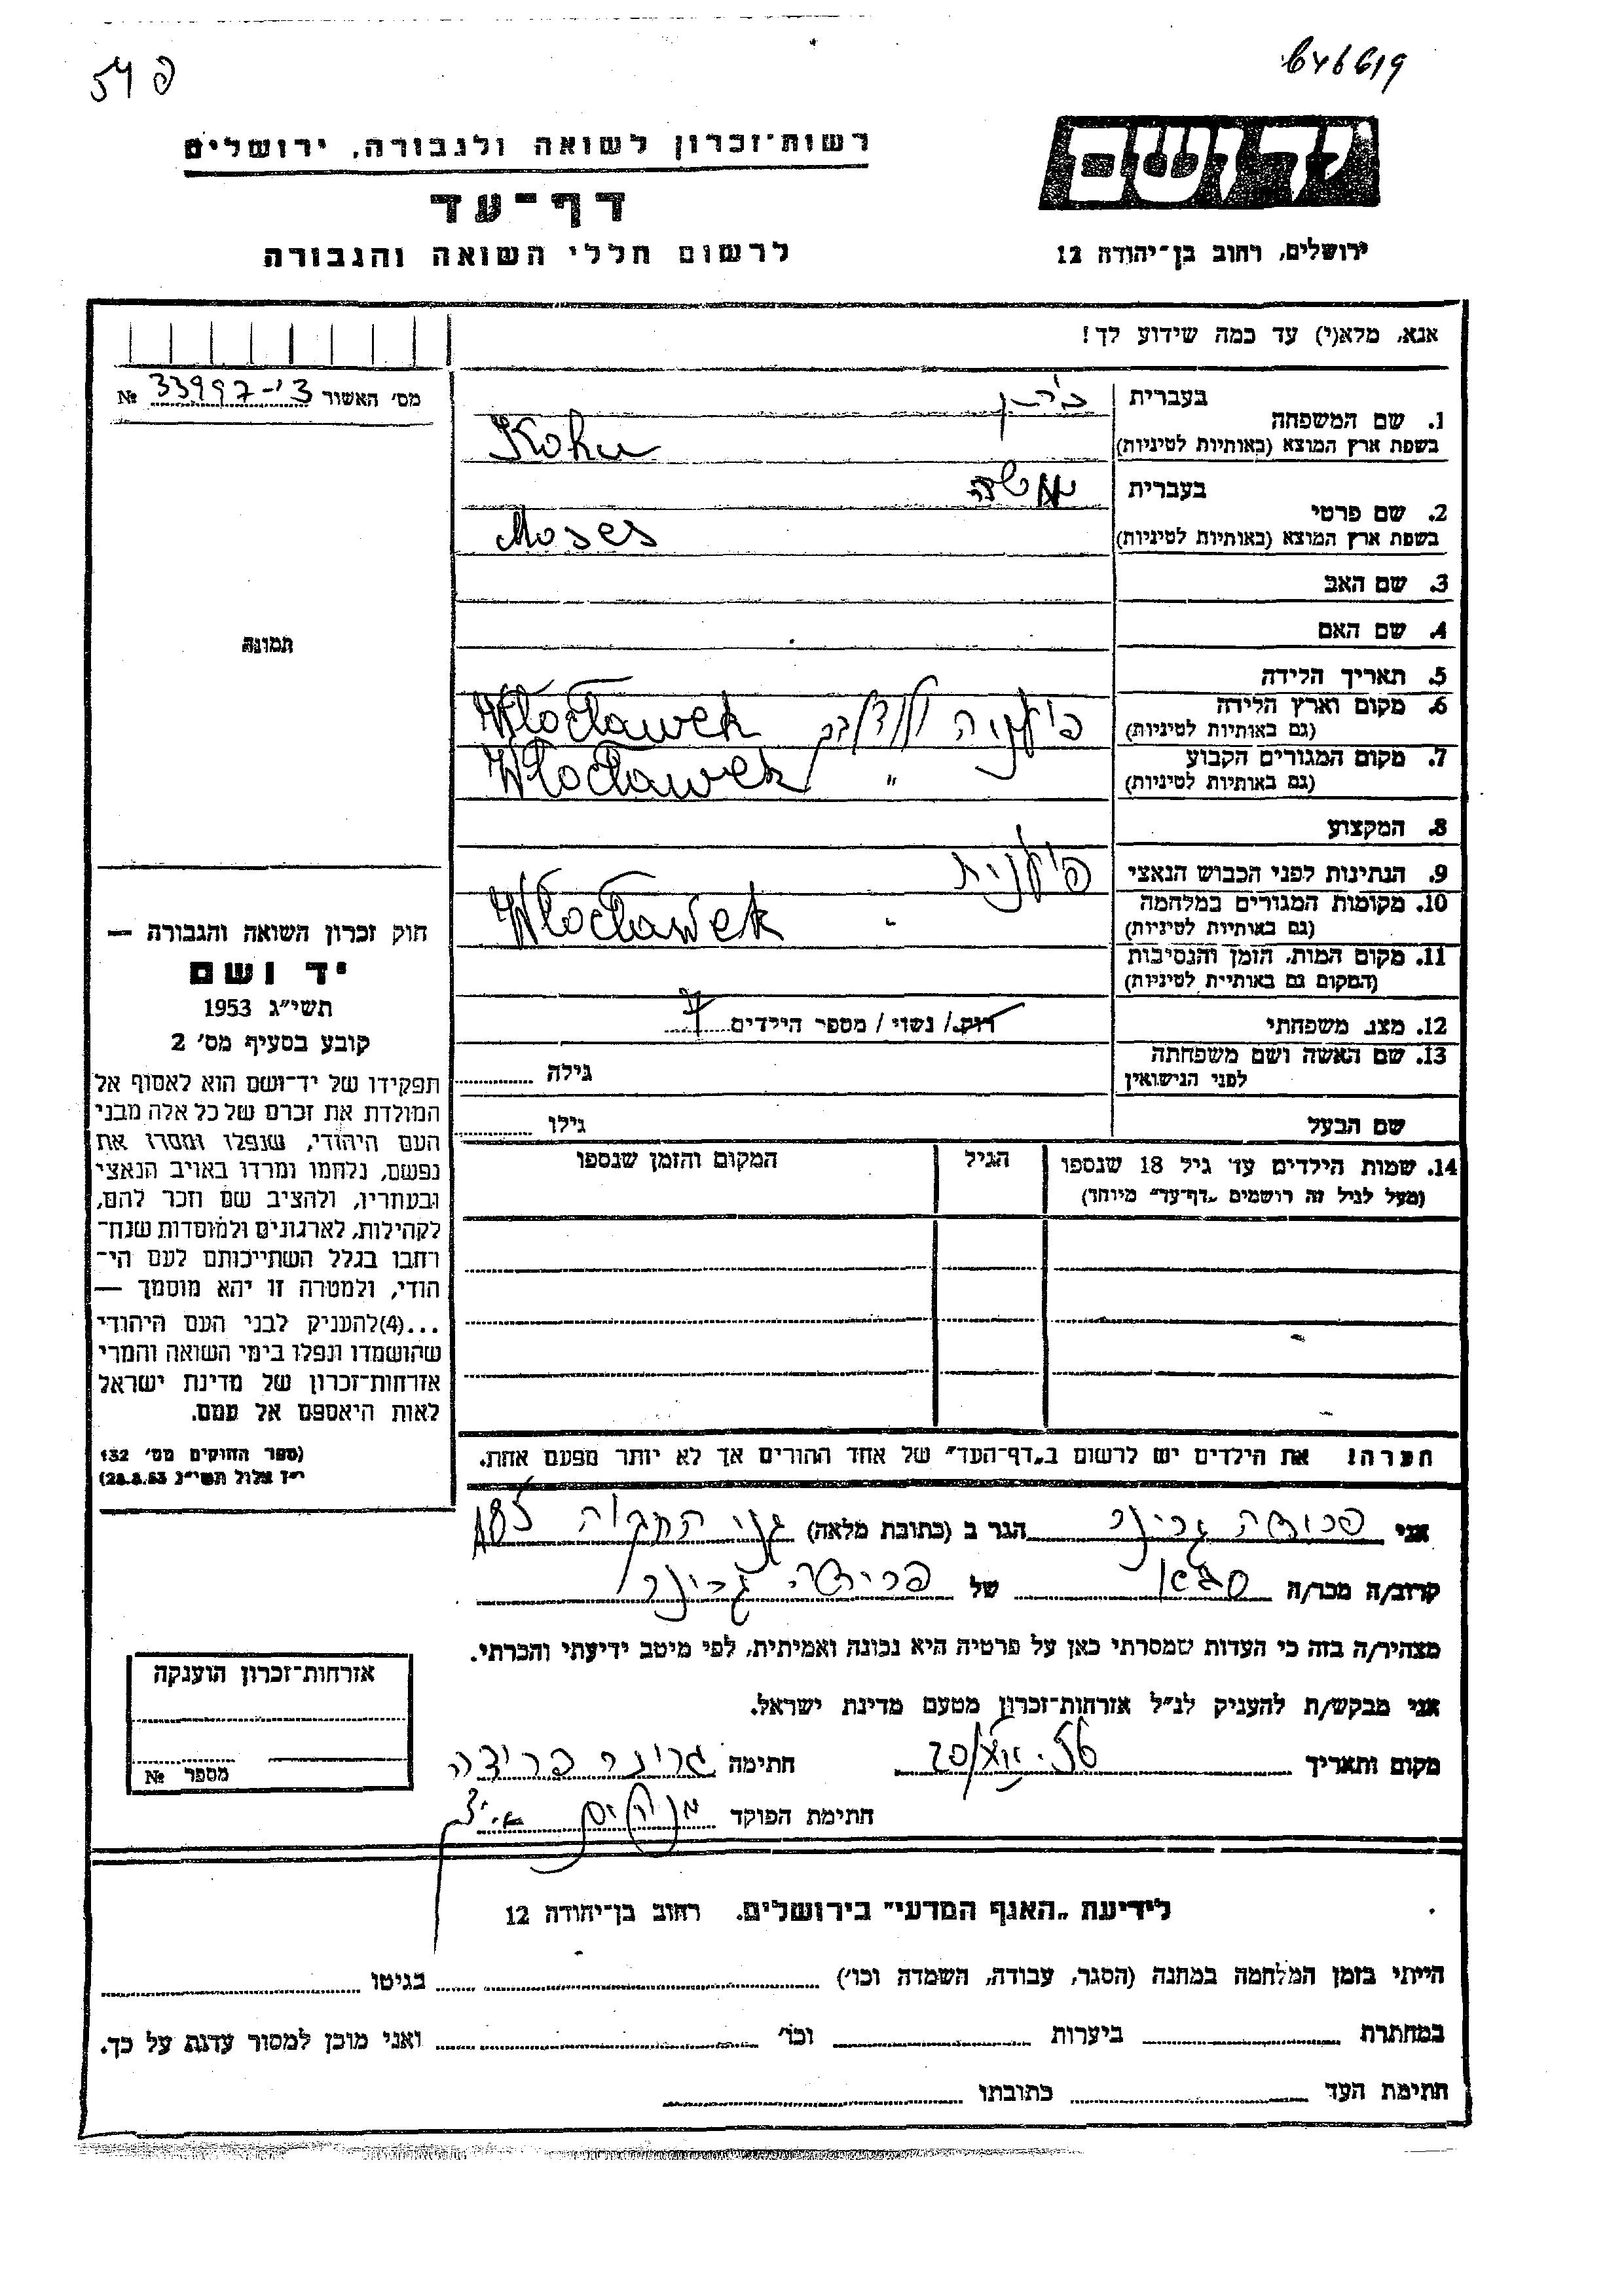 646619
54 פ
יד ושם
רשות־זכרון לשואה ולגבורה, ירושלים
דף־עד
לרשום חללי השואה והגבורה
ירושלים, רחוב בן־יהודה 12
אנא, מלא(י) עד כמה שידוע לך!
מס׳ האשור № 33997
1. שם המשפחה
בעברית
בשפת ארץ המוצא (באותיות לטיניות) Kohn
2. שם פרטי
בעברית משה
בשפת ארץ המוצא (באותיות לטיניות) Moses
3. שם האב
4. שם האם
5. תאריך הלידה
6. מקום וארץ הלידה Włocławek
(גם באותיות לטיניות)
7. מקום המגורים הקבוע " Włocławek
(גם באותיות לטיניות)
8. המקצוע
9. הנתינות לפני הכבוש הנאצי פולנית
10. מקומות המגורים במלחמה Włocławek
(גם באותיות לטיניות)
11. מקום המות, הזמן והנסיבות
(המקום גם באותיות לטיניות)
12. מצב משפחתי רוק / נשוי / מספר הילדים
13. שם האשה ושם משפחתה גילה
לפני הנישואין
שם הבעל גילו
14. שמות הילדים עד גיל 18 שנספו הגיל המקום והזמן שנספו
(מעל לגיל זה רושמים „דף־עד״ מיוחד)
הערה! את הילדים יש לרשום ב„דף־העד״ של אחד ההורים אך לא יותר מפעם אחת.
תמונה
חוק זכרון השואה והגבורה —
יד ושם
תשי״ג 1953
קובע בסעיף מס׳ 2
תפקידו של יד־ושם הוא לאסוף אל
המולדת את זכרם של כל אלה מבני
העם היהודי, שנפלו ומסרו את
נפשם, נלחמו ומרדו באויב הנאצי
ובעוזריו, ולהציב שם וזכר להם,
לקהילות, לארגונים ולמוסדות שנח־
רבו בגלל השתייכותם לעם הי־
הודי, ולמטרה זו יהא מוסמך —
...(4) להעניק לבני העם היהודי
שהושמדו ונפלו בימי השואה והמרי
אזרחות־זכרון של מדינת ישראל
לאות היאספם אל עמם.
(ספר החוקים מס׳ 132
י״ז אלול תשי״ג 28.8.53)
אני פרידה גרינר הגר ב (כתובת מלאה) גני התקוה
קרוב/ה מכר/ה סבא של פרידה גרינר
מצהיר/ה בזה כי העדות שמסרתי כאן על פרטיה היא נכונה ואמיתית, לפי מיטב ידיעתי והכרתי.
אני מבקש/ת להעניק לנ״ל אזרחות־זכרון מטעם מדינת ישראל.
מקום ותאריך חתימה גרינר פרידה
חתימת הפוקד
אזרחות־זכרון הוענקה
מספר №
לידיעת „האגף המדעי״ בירושלים. רחוב בן־יהודה 12
הייתי בזמן המלחמה במחנה (הסגר, עבודה, השמדה וכו׳) בגיטו
במחתרת ביערות וכו׳ ואני מוכן למסור עדות על כך.
חתימת העד כתובתו